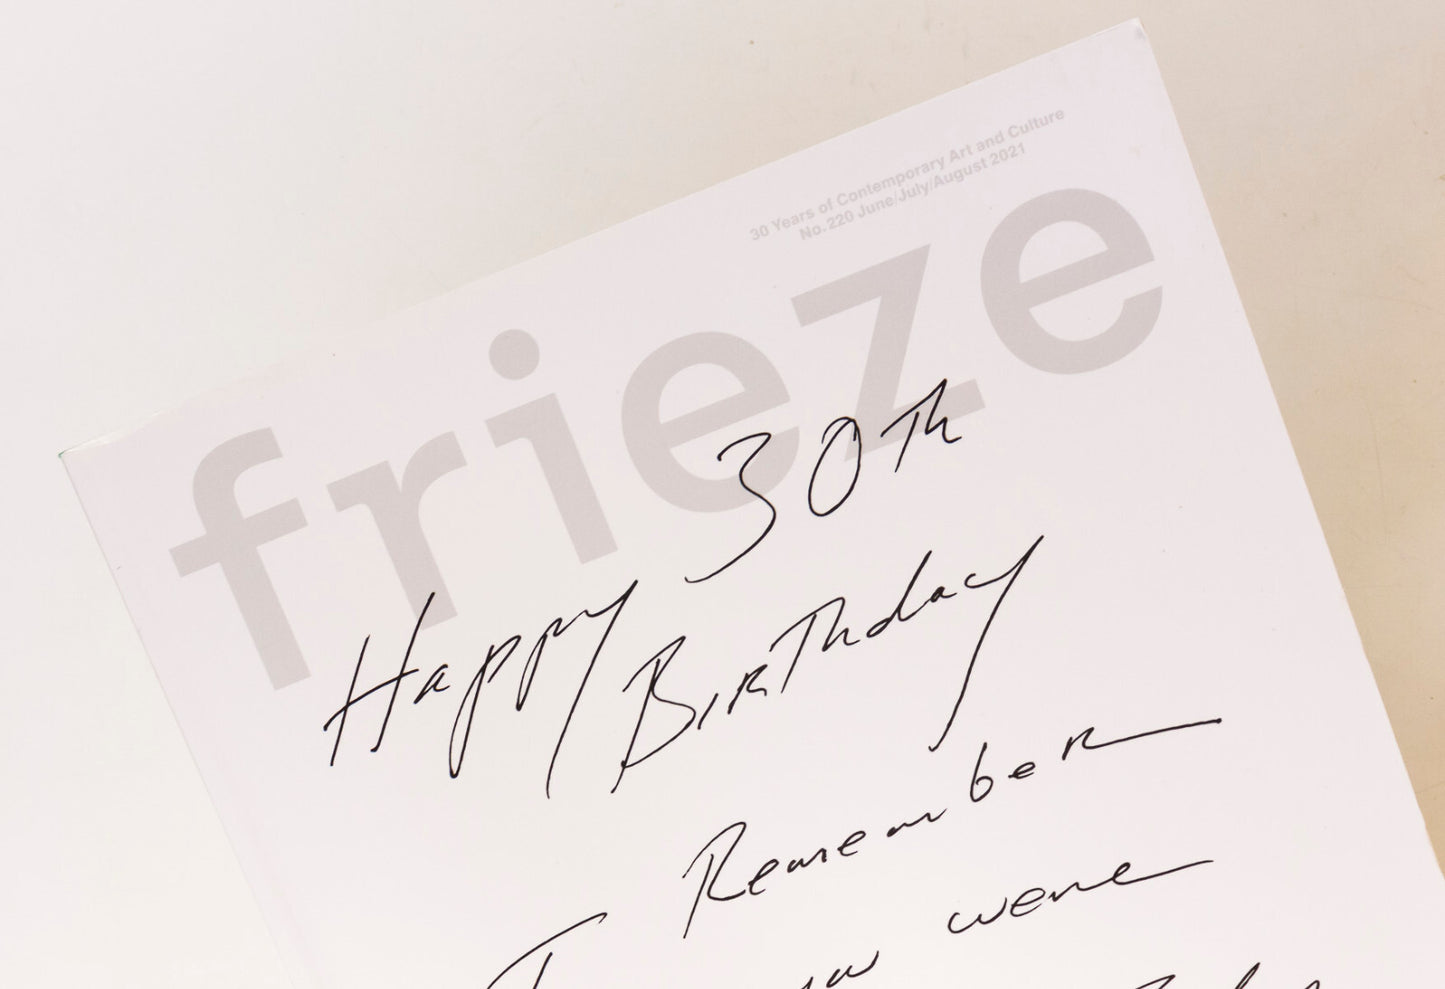 30 Years of Contemporary Art and Culture
No. 220 June/July/August 2021
frieze
Happy 30Th
Birthday
I Remember
were